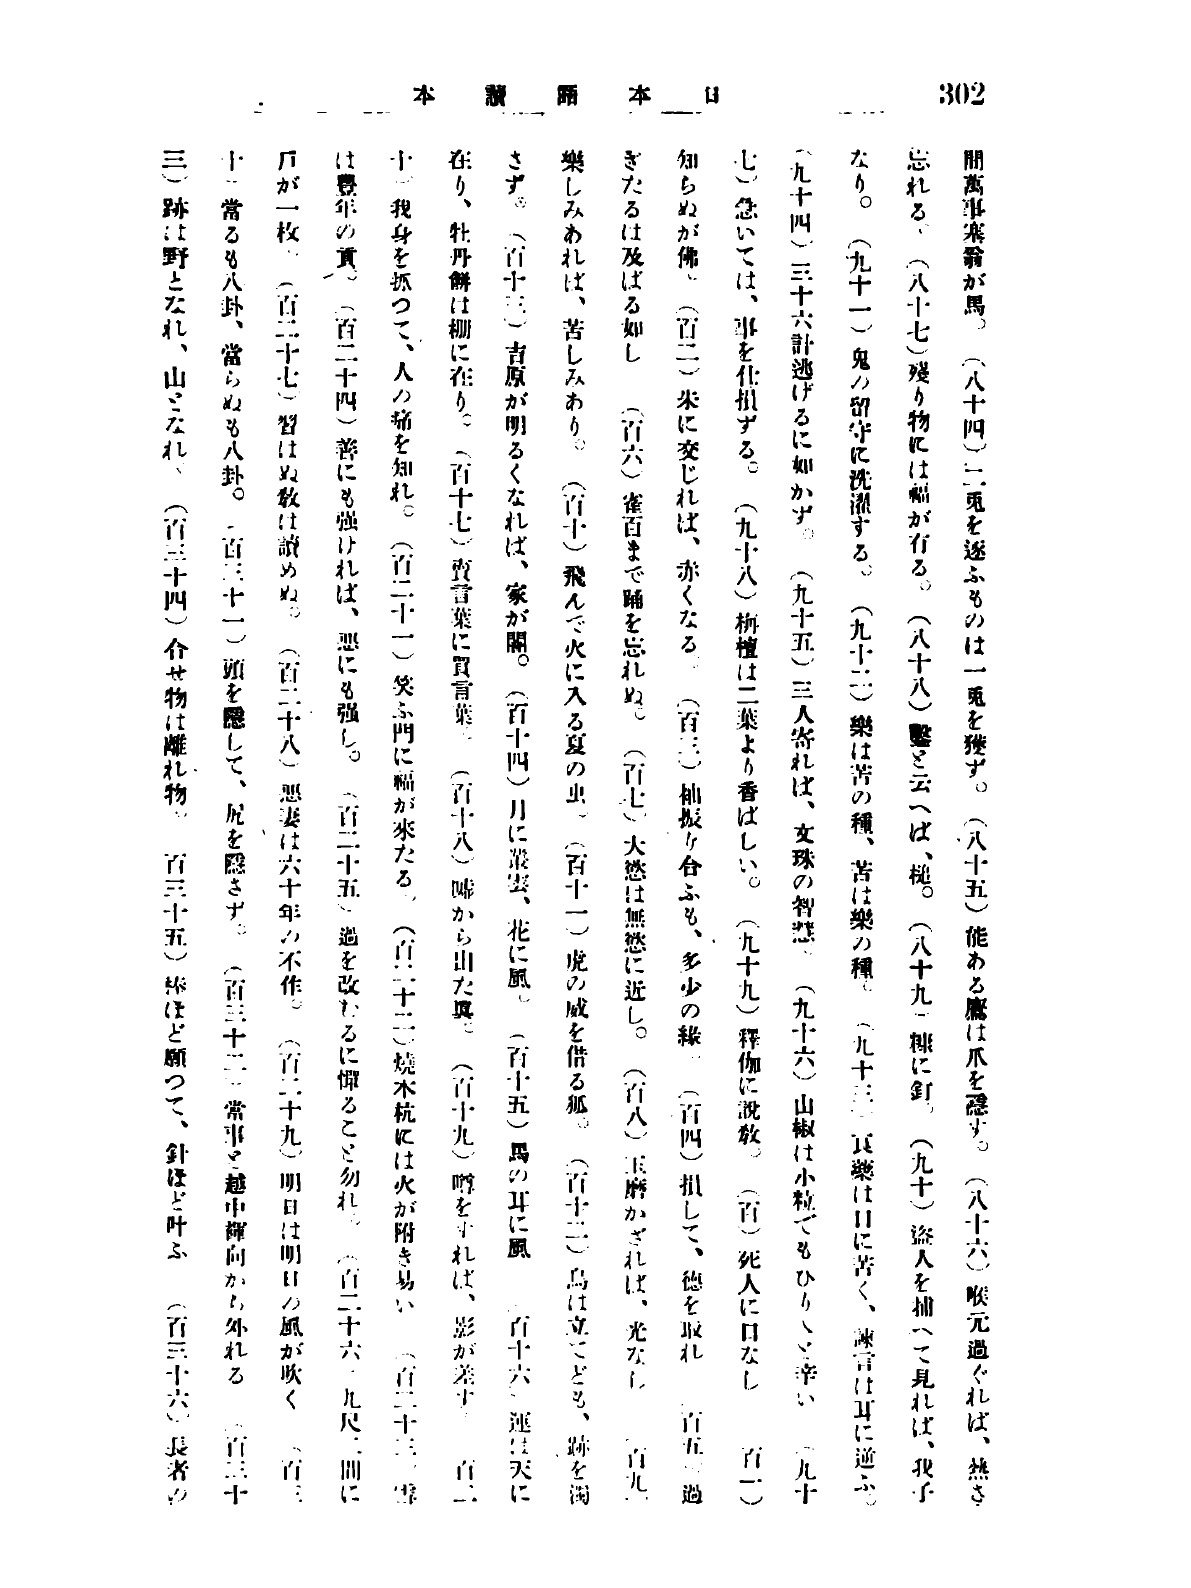 302
日本語讀本
間萬事塞翁が馬。（八十四）二兎を逐ふものは一兎を獲ず。（八十五）能ある鷹は爪を隱す。（八十六）喉元過ぐれば、熱さ
忘れる。（八十七）殘り物には福が有る。（八十八）鑿と云へば、槌。（八十九）糠に釘。（九十）盜人を捕へて見れば、我子
なり。（九十一）鬼の留守に洗濯する。（九十二）樂は苦の種、苦は樂の種。（九十三）良藥は口に苦く、諫言は耳に逆ふ。
（九十四）三十六計逃げるに如かず。（九十五）三人寄れば、文珠の智慧。（九十六）山椒は小粒でもひり〱と辛い（九十
七）急いては、事を仕損ずる。（九十八）栴檀は二葉より香ばしい。（九十九）釋伽に說敎。（百）死人に口なし（百一）
知らぬが佛。（百二）朱に交じれば、赤くなる。（百三）袖振り合ふも、多少の緣。（百四）損して、德を取れ（百五）過
ぎたるは及ばる如し（百六）雀百まで踊を忘れぬ。（百七）大慾は無慾に近し。（百八）玉磨かざれば、光なし（百九）
樂しみあれば、苦しみあり。（百十）飛んで火に入る夏の虫。（百十一）虎の威を借る狐。（百十二）鳥は立てども、跡を濁
さず。（百十三）吉原が明るくなれば、家が闇。（百十四）月に叢雲、花に風。（百十五）馬の耳に風（百十六）運は天に
在り、牡丹餅は棚に在り。（百十七）賣言葉に買言葉。（百十八）噓から出た眞。（百十九）噂をすれば、影が差す（百二
十）我身を抓つて、人の痛を知れ。（百二十一）笑ふ門に福が來たる。（百二十二）燒木杭には火が附き易い（百二十三）雪
は豐年の貢。（百二十四）善にも强ければ、惡にも强し。（百二十五）過を改むるに憚ること勿れ。（百二十六）九尺二間に
戶が一枚。（百二十七）習はぬ敎は讀めぬ。（百二十八）惡妻は六十年の不作。（百二十九）明日は明日の風が吹く（百三
十）當るも八卦、當らぬも八卦。（百三十一）頭を隱して、尻を隱さず。（百三十二）當事と越中褌向から外れる（百三十
三）跡は野となれ、山となれ、（百三十四）合せ物は離れ物。（百三十五）棒ほど願つて、針ほど叶ふ（百三十六）長者の